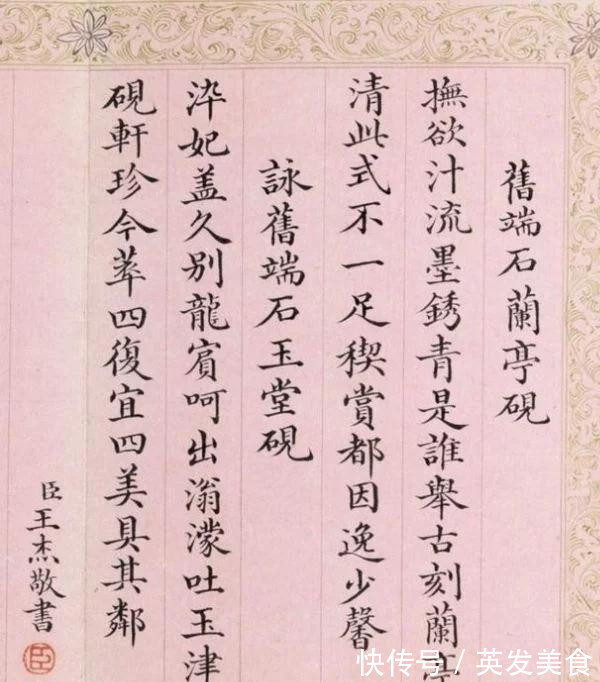 舊端石蘭亭硯
撫欲汁流墨銹青是誰舉古刻蘭亭
清此式不一足稧賞都因逸少馨
詠舊端石玉堂硯
泮妃盖久别龍賓呵出滃濛吐玉津
硯軒珍今萃四復宜四美具其鄰
臣王杰敬書
臣
快传号/英发美食